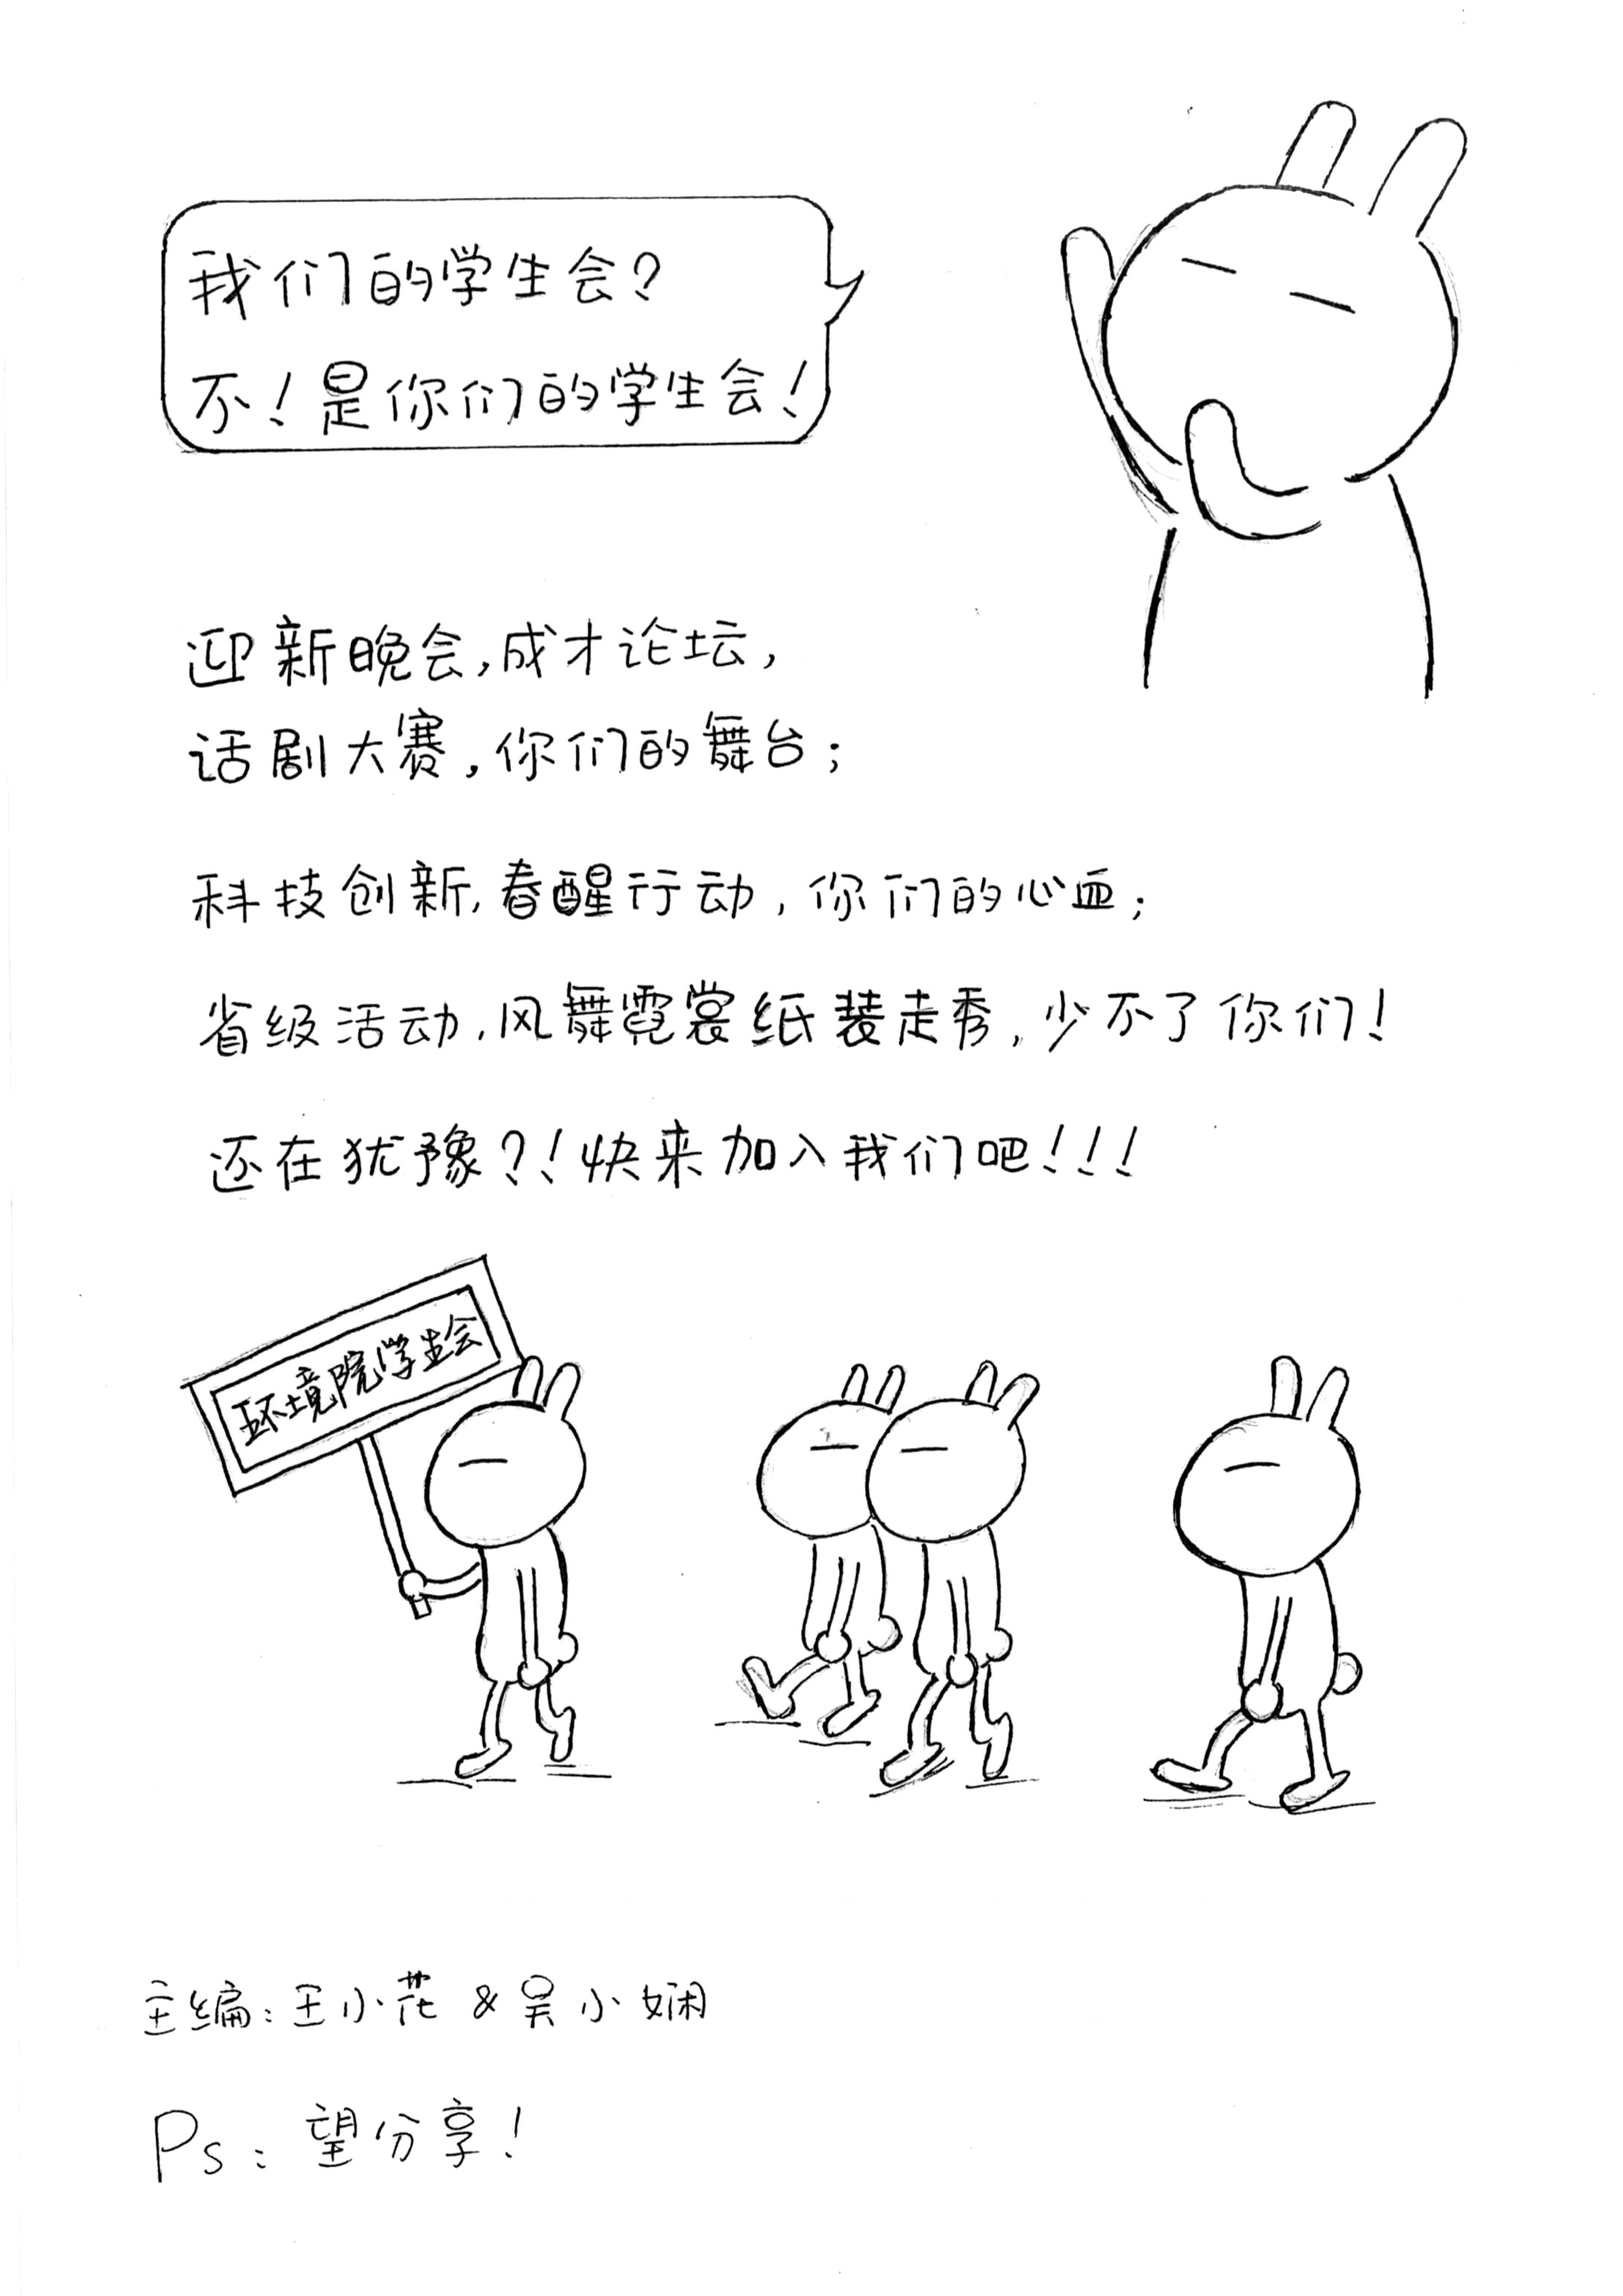 我们的学生会?
不!是你们的学生会!
迎新晚会,成才论坛,
话剧大赛,你们的舞台;
科技创新,春醒行动,你们的心血;
省级活动,风舞霓裳纸装走秀,少不了你们!
还在犹豫?!快来加入我们吧!!!
环境院学生会
主编:王小花&吴小娴
Ps:望分享!